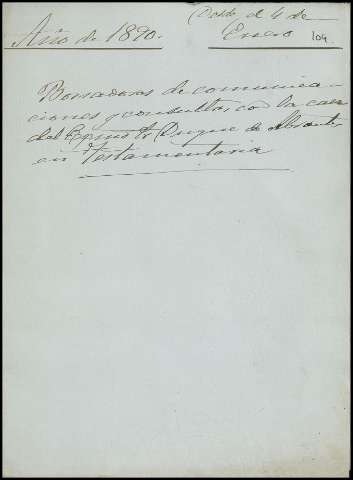 Año de 1890.
Desde el 4 de
Enero
104
Borradores de comunica-
ciones y consultas, con la casa
del Excmo Sr Duque de Abrantes
en Testamentaria